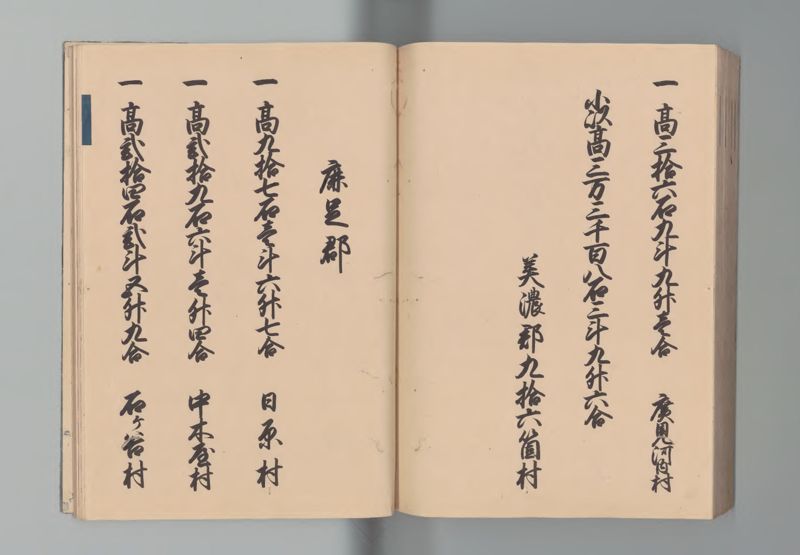 一 高三拾六石九斗九升壱合 廣見河内村
以高三万三千百八石三斗九升六合
美濃郡九拾六箇村
鹿足郡
一 高九拾七石壱斗六升七合 日原村
一 高弐拾九石六斗壱升四合 中木屋村
一 高弐拾四石弐斗五升九合 石ヶ谷村